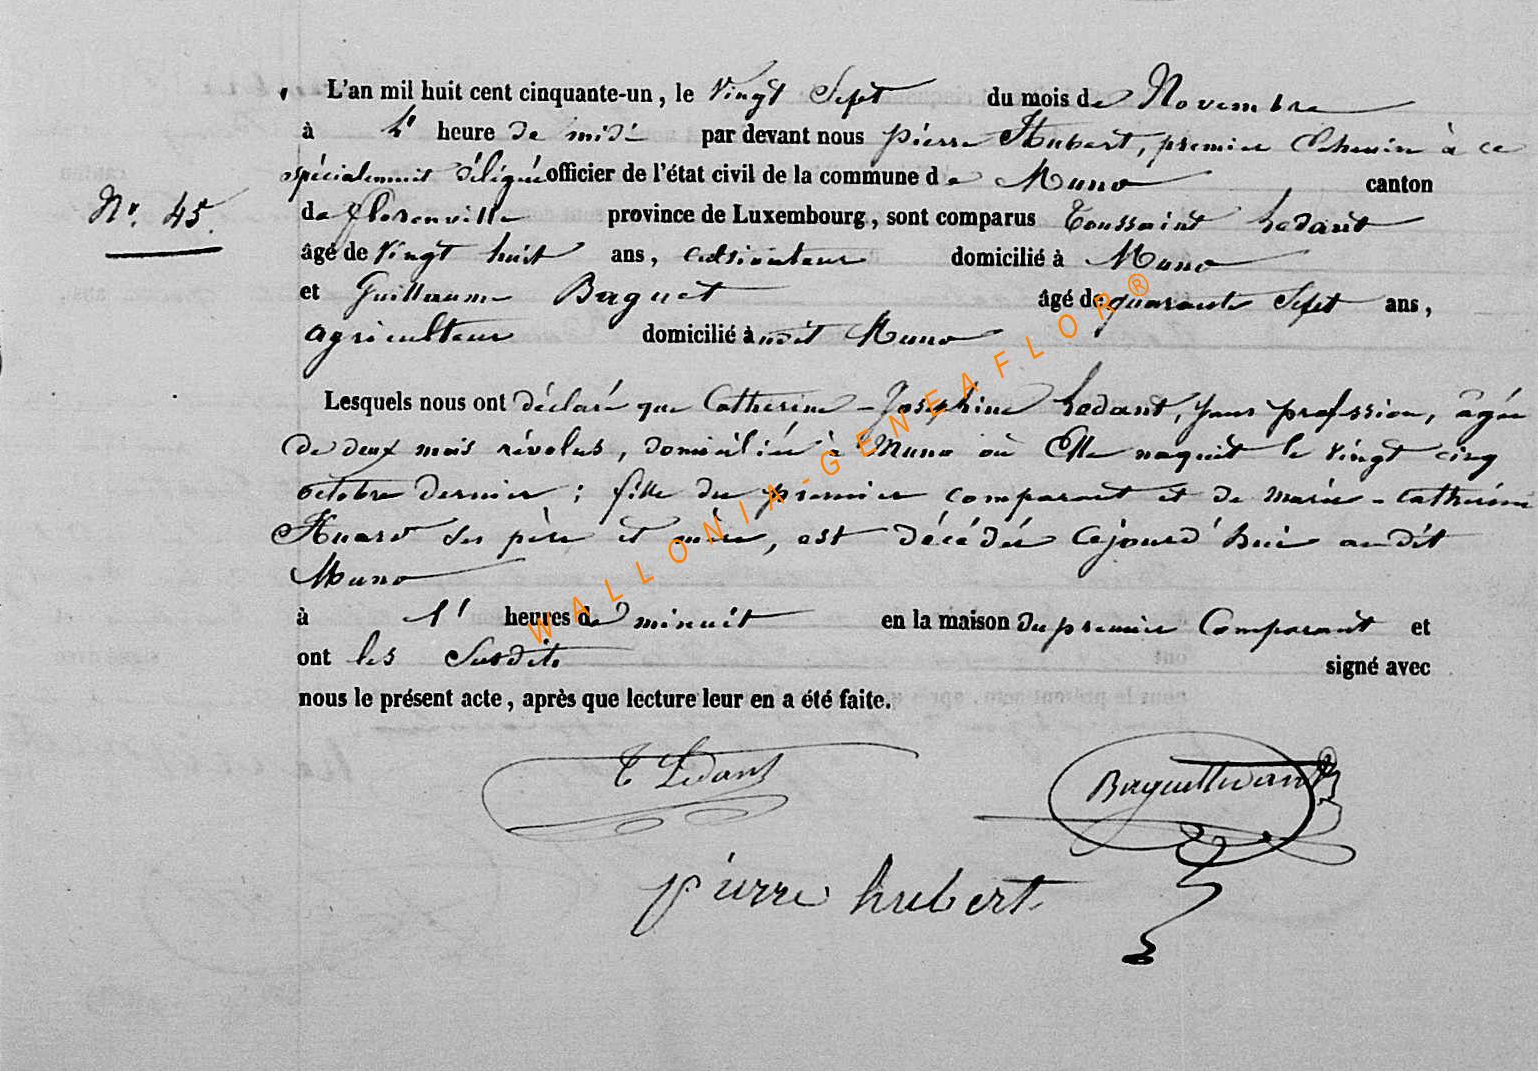 L'an mil huit cent cinquante-un, le Vingt Sept du mois de Novembre
à heure de midi par devant nous pierre Hubert, premier Echevin à ce
spécialement délégué officier de l'état civil de la commune de Muno canton
Nr. 45.
de florenville province de Luxembourg, sont comparus Toussaint Ledant
âgé de Vingt huit ans, cultivateur domicilié à Muno
et Guillaume Baquet âgé de quarante Sept ans,
agriculteur domicilié à udit Muno
Lesquels nous ont déclaré que Catherine - Josephine Ledant, sans profession, agée
de deux mois révolus, domiciliée à Muno où Elle naquit le vingt cinq
octobre dernier ; fille du premier comparant et de marie - catherine
Huard ses père et mère, est décédée cejourd'hui audit
Muno
à 1' heures de minuit en la maison du premier Comparant et
ont les Susdits signé avec
nous le présent acte, après que lecture leur en a été faite.
T Ledant
pierre hubert
WALLONIA-GENEAFLOR®